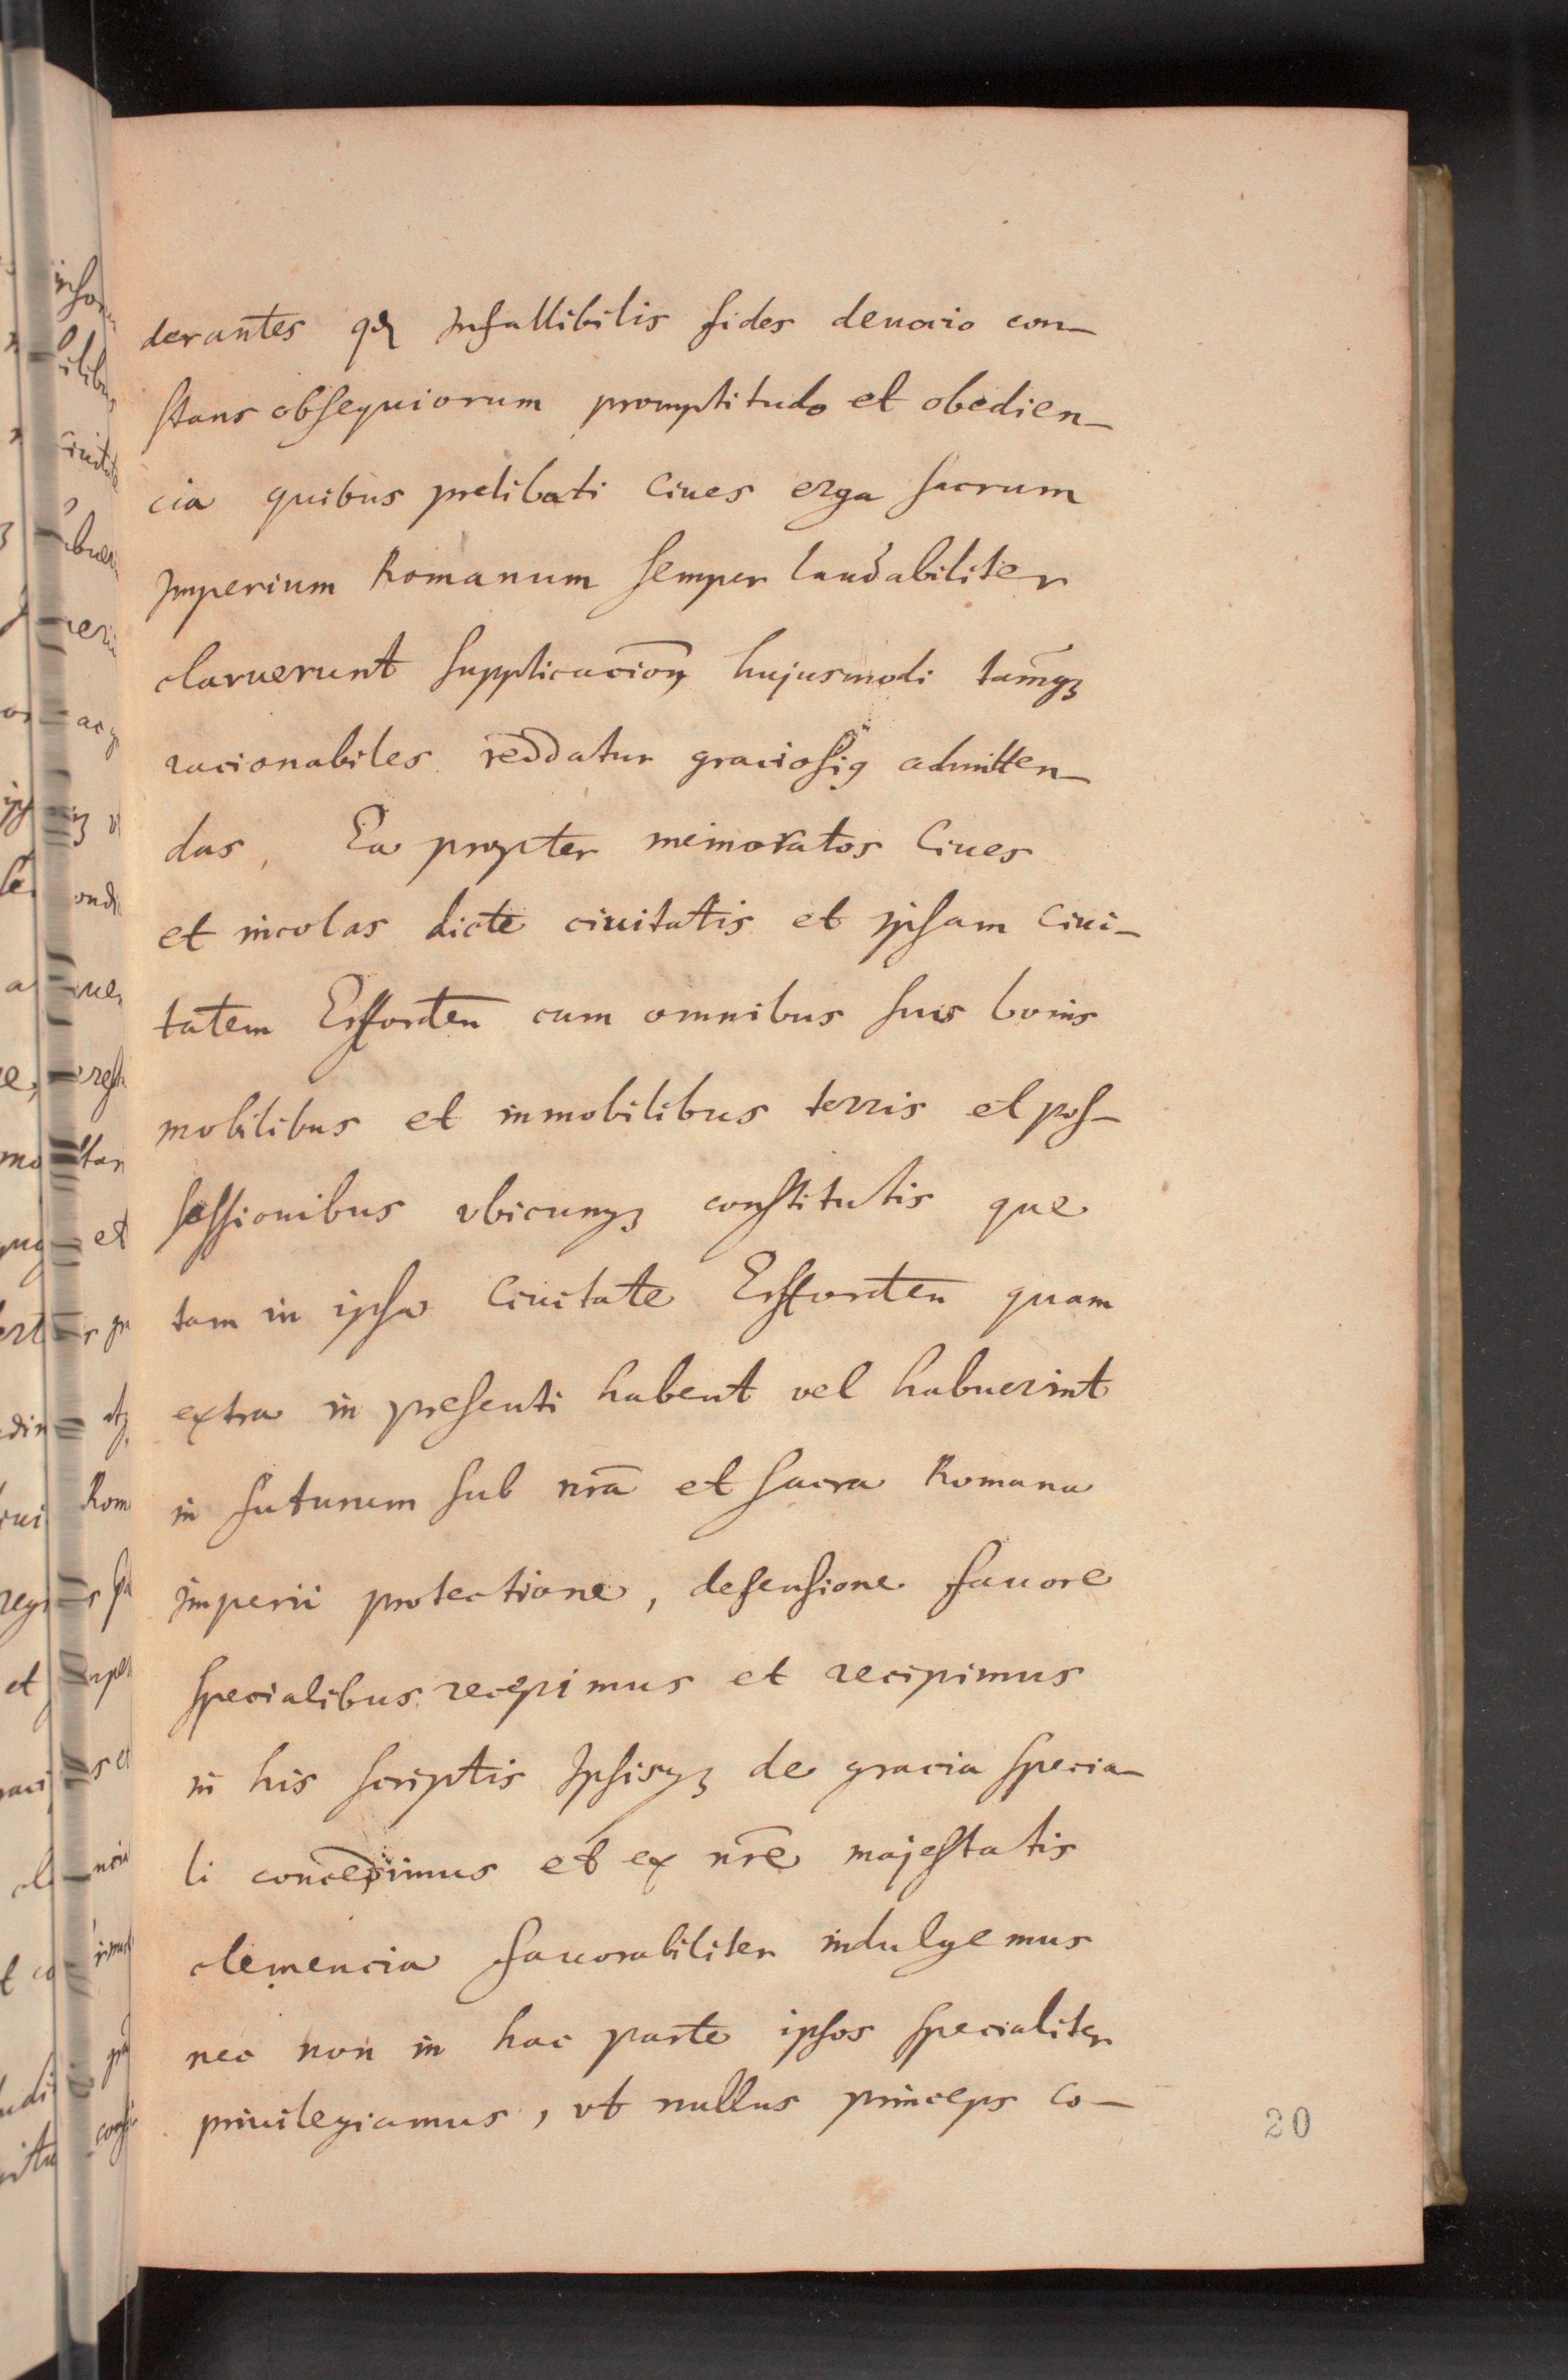 derantes qꝫ Infallibilis fides deuocio con-
stans obsequiorum promptitudo et obedien-
cia quibus prelibati Ciues erga sacrum
Imperium Romanum semper laudabiliter
claruerunt supplicacion̄ hujusmodi tam̄qꝫ
racionabiles reddatur graciosiꝰ admitten-
das, Ea propter memoratos Ciues
et incolas dicte ciuitatis et ipsam Ciui-
tatem Erfforden̄ cum omnibus suis bonis
mobilibus et inmobilibus terris et pos-
sessionibus vbicunqꝫ constitutis que
tam in ipsa Ciuitate Erfforden̄ quam
extra in presenti habent vel habuerint
in futurum sub nr̄a et sacra Romana
imperii protectione, defensione fauore
specialibus recepimus et recipimus
in his scriptis Ipsisqꝫ de gracia specia-
li concedimus et ex nr̄e majestatis
clemencia fauorabiliter indulgemus
nec non in hac parte ipsos specialiter
priuilegiamus, vt nullus princeps co-
20